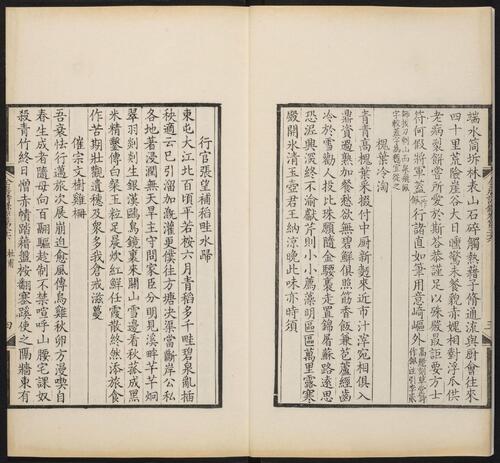 端水筒坼林表山石碎觸熱藉子脩通流與厨會往來
四十里荒險崖谷大日曛驚未餐貌赤媿相對浮瓜供
老病裂餅嘗所愛於斯荅恭謹足以殊殿最詎要方士
符何假將軍蓋一作佩行諸直如筆用意崎嶇外
師拔刀刺山而泉飛佩
字較蓋字為勝宜從之
槐葉冷淘
青青高槐葉采掇付中厨新麪來近市汁滓宛相俱入
鼎資過熟加餐愁欲無碧鮮俱照筯香飯兼苞蘆經齒
冷於雪勸人投比珠願隨金騕褭走置錦屠蘇路遠思
恐泥興深終不渝獻芹則小小薦藻明區區萬里露寒
殿開冰清玉壺君王納涼晚此味亦時須
行官張望補稻畦水歸
東屯大江北百頃平若桉六月青稻多千畦碧泉亂插
秧適云已引溜加溉灌更僕往方塘决渠當斷岸公私
各地著浸潤無天旱主守問家臣分明見溪畔芊芊炯
翠羽剡剡生銀漢鷗鳥鏡裏來關山雪邊看秋菰成黑
米精鑿傳白粲玉粒足晨炊紅鮮任霞散終然添旅食
作苦期壯觀遺穗及衆多我倉戒滋蔓
催宗文樹雞柵
吾衰怯行邁旅次展崩迫愈風傳烏雞秋卵方漫喫自
春生成者隨母向百翮驅趁制不禁喧呼山腰宅課奴
殺青竹終日憎赤幘踏藉盤桉翻塞蹊使之隔牆東有
杜甫
四